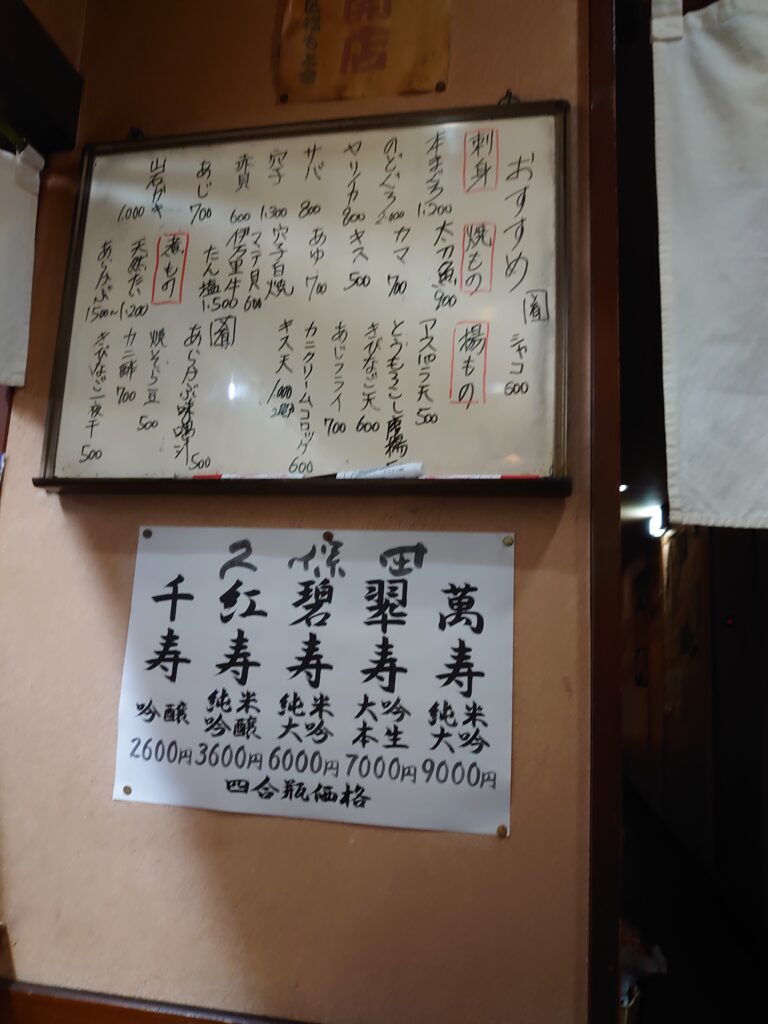 開店
おすすめ
刺身
本まぐろ 1,200
のどぐろ 2,000
ヤリイカ 800
サバ 800
穴子 1,300
赤貝 600
あじ 700
岩ガキ 1,000
焼もの
太刀魚 900
カマ 700
キス 500
あゆ 700
穴子白焼
マテ貝 600
伊万里牛
たん塩 1,500
煮もの
天然たい 1,200
あら 1500~
シャコ 600
揚もの
アスパラ天 500
とうもろこし唐揚
きびなご天 600
あじフライ 700
カニクリームコロッケ 600
キス天 1,000
味噌汁 500
焼そら豆 500
カニ酢 700
きびなご一夜干 500
久保田
萬寿
純米
大吟
9000円
翠寿
大吟
本生
7000円
碧寿
純米
大吟
6000円
紅寿
純米
吟醸
3600円
千寿
吟醸
2600円
四合瓶価格